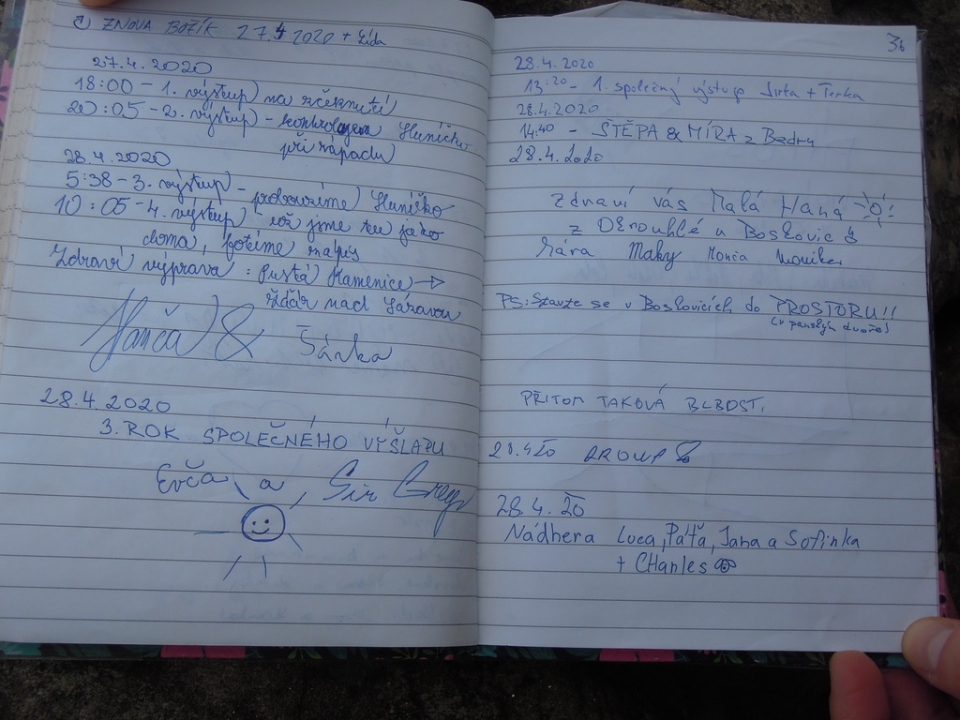 ZNOVA BOŽÍK 27.4 2020 + Lída
27.4.2020
18:00 - 1. výstup na zčeknutí
20:05 - 2. výstup - Sluníčko
při západu
28.4.2020
5:38 - 3. výstup - Sluníčko
10:05 - 4. výstup už jsme tu jako
doma, prosíme zápis
Zdraví výprava: Pustá Kamenice →
Žďár nad Sázavou
Hanča & Šárka
28.4.2020
3. ROK SPOLEČNÉHO VÝŠLAPU
Evča a Sir Greg
36
28.4.2020
13:20 - 1. společný výstup Jirka + Terka
28.4.2020
14:40 - ŠTĚPA & MÍRA z Bedru
28.4.2020
Zdraví vás Malá Haná
z Okrouhlé u Boskovic
Sára Maky Monča Monika
PS: Stavte se v Boskovicích do PROSTORU!!
(v panským dvoře)
PŘITOM TAKOVÁ BLBOST.
28.4.20
28.4.20
Nádhera Luca, Páťa, Jana a Sofinka
+ CHarles